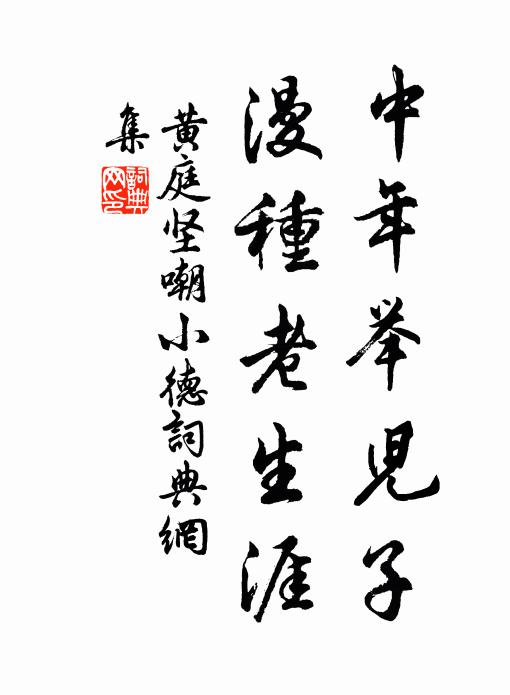 中年举児子
漫種老生涯
黄庭坚嘲小德詞典網
集
詞典网印